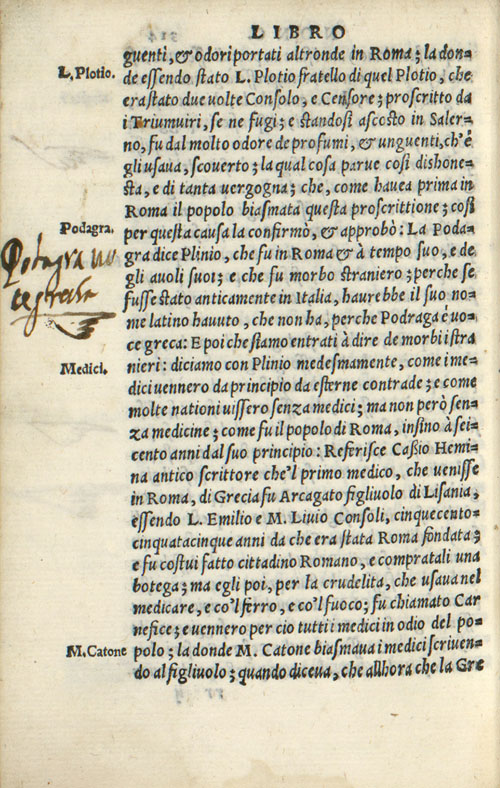 LIBRO
guenti, & odori portati altronde in Roma; la don-
L. Plotio.
de essendo stato L. Plotio fratello di quel Plotio, che
era stato due uolte Consolo, e Censore; proscritto da
i Triumuiri, se ne fugì; e standosi ascosto in Saler-
no, fu dal molto odore de profumi, & unguenti, ch'e
gli usaua, scouerto; la qual cosa parue così dishone-
sta, e di tanta uergogna; che, come hauea prima in
Roma il popolo biasmata questa proscrittione; così
Podagra.
per questa causa la confirmò, & approbò: La Poda-
Podagra uo
gra dice Plinio, che fu in Roma & à tempo suo, e de
ce greca
gli auoli suoi; e che fu morbo straniero; perche se
fusse stato anticamente in Italia, haurebbe il suo no-
me latino hauuto, che non ha, perche Podraga è uo-
ce greca: E poi che siamo entrati à dire de morbi istra
Medici.
nieri: diciamo con Plinio medesmamente, come i me-
dici uennero da principio da esterne contrade; e come
molte nationi uissero senza medici; ma non però sen-
za medicine; come fu il popolo di Roma, insino à sei-
cento anni dal suo principio: Referisce Cassio Hemi-
na antico scrittore che'l primo medico, che uenisse
in Roma, di Grecia fu Arcagato figliuolo di Lisania,
essendo L. Emilio e M. Liuio Consoli, cinquecento-
cinquatacinque anni da che era stata Roma fondata;
e fu costui fatto cittadino Romano, e compratali una
botega; ma egli poi, per la crudelita, che usaua nel
medicare, e co'l ferro, e co'l fuoco; fu chiamato Car
nefice; e uennero per cio tutti i medici in odio del po-
M. Catone
polo; la donde M. Catone biasmaua i medici scriuen-
do al figliuolo; quando diceua, che allhora che la Gre